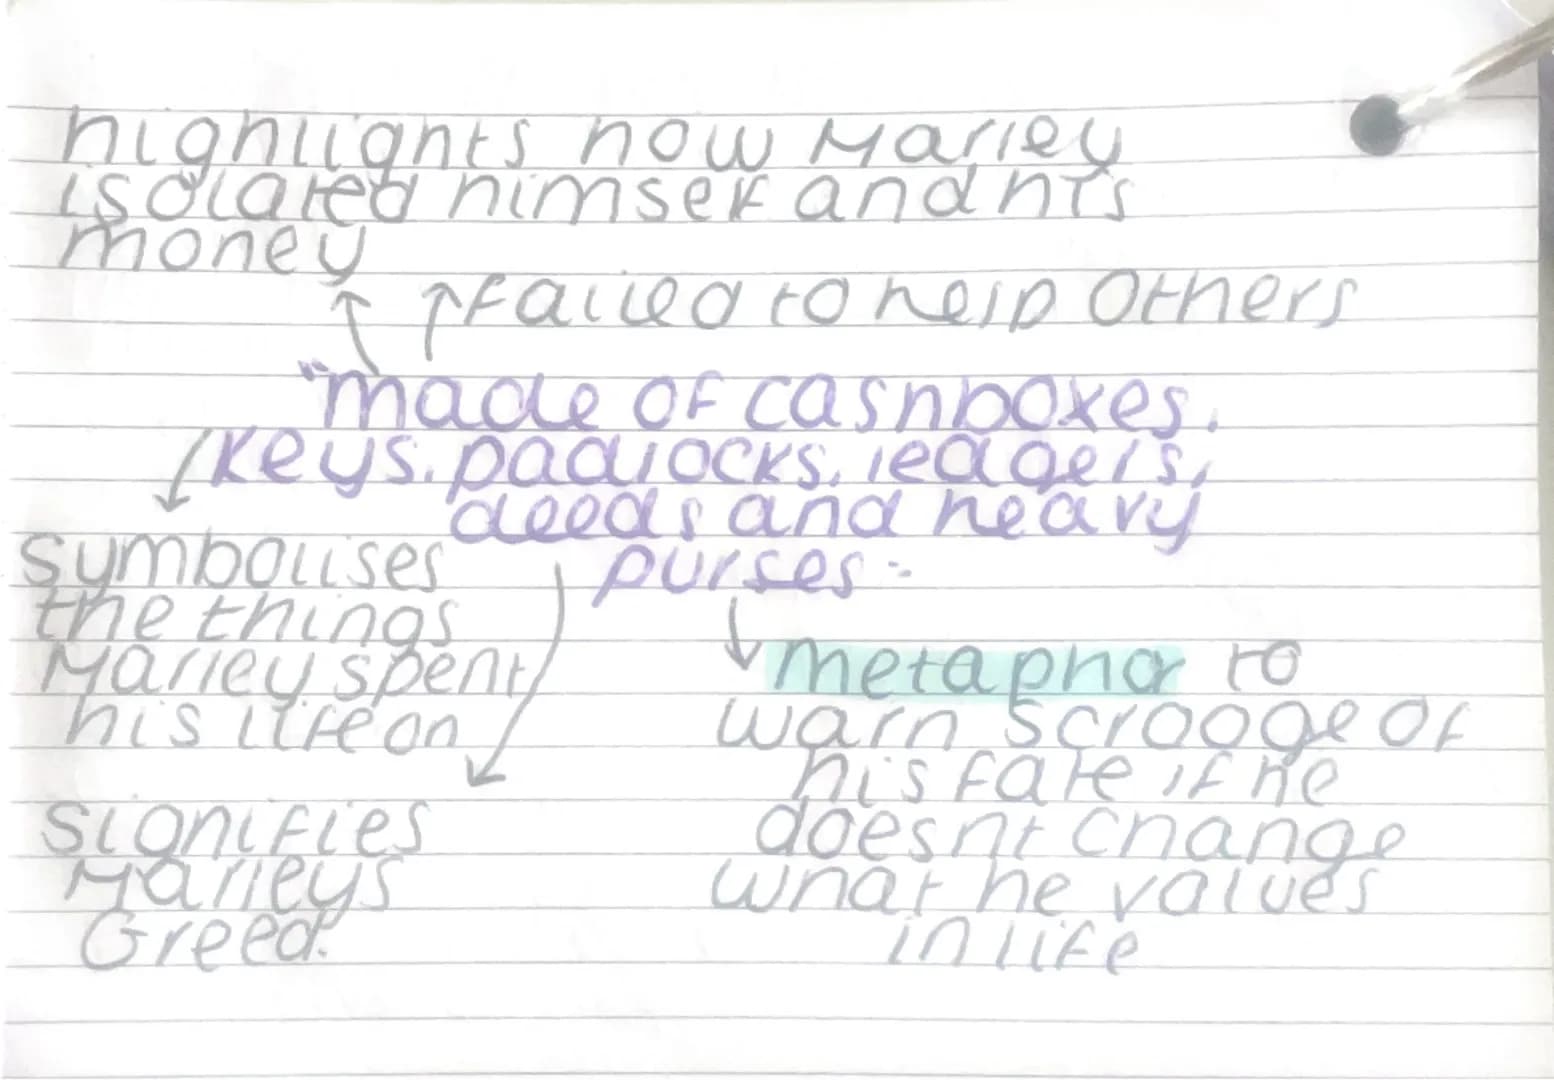 highlights how Marley
isolated himself and his
money
failed to help Others
"made of cashboxes,
keys, padlocks, ledgers,
deeds and heavy
purses"
Symbolises
the things
Marley spent
his life on
Metaphor to
warn Scrooge of
his fate if he
doesnt change
what he values
in life
Signifies
Marleys
Greed.